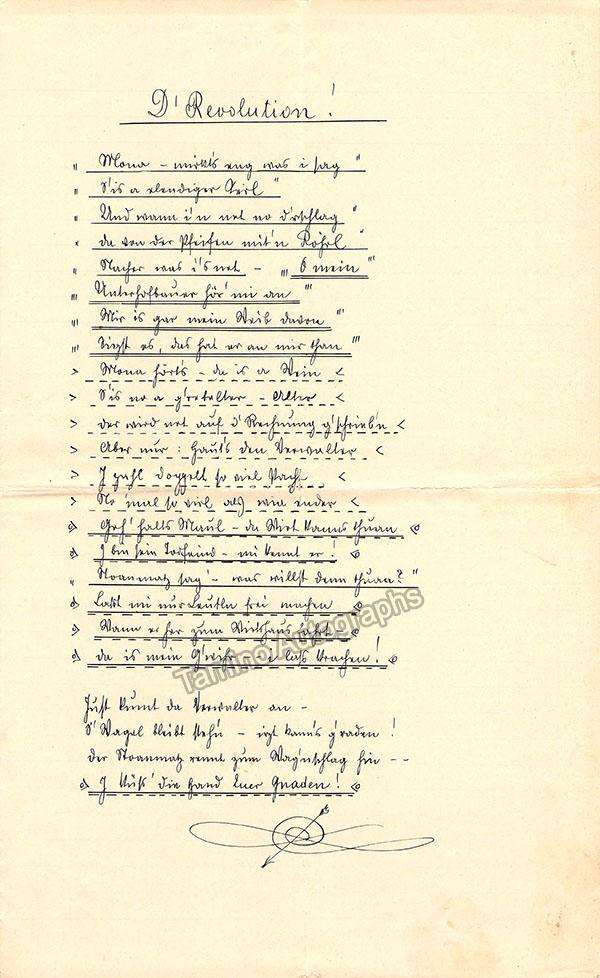 D' Revolution!
" Mona – mirkts eng was i sag "
" S'is a elendiger Kerl "
" Und wann i'n net no d'rschlag "
" da von der Pfeifen mit'n Röhrl "
" Nacher was i's net – " "' O mein "'
"' Unterhofbauer hör' mi an "'
"' Mir is gar mein Weib davon "'
"' Siegst es, das hat er an mir than "'
> Mona hörts – da is a Wein <
> S'is no a g'rebelter – Alter <
> der wird net auf d' Rechnung g'schrieb'n <
> Aber nur: Haut's den Verwalter <
> I zahl doppelt so viel Pacht <
> No 'mal so viel als wia ender <
Geh' halts Maul – da Wirt kanns thuan
I bin sein Todfeind – mi kennt er!
" Stoanmatz sag' – was willst denn thuan? "
Laßt mi nur Leutln frei machen
Wann er her zum Wirtshaus fahrt
da is mein G'wihr – i lass krachen!
Just kummt da Verwalter an –
S' Wagel bleibt steh'n – iazt kann's g'raden!
der Stoanmatz rennt zum Wag'nschlag hin – –
I küß' die Hand Euer Gnaden!
Tamino Autographs